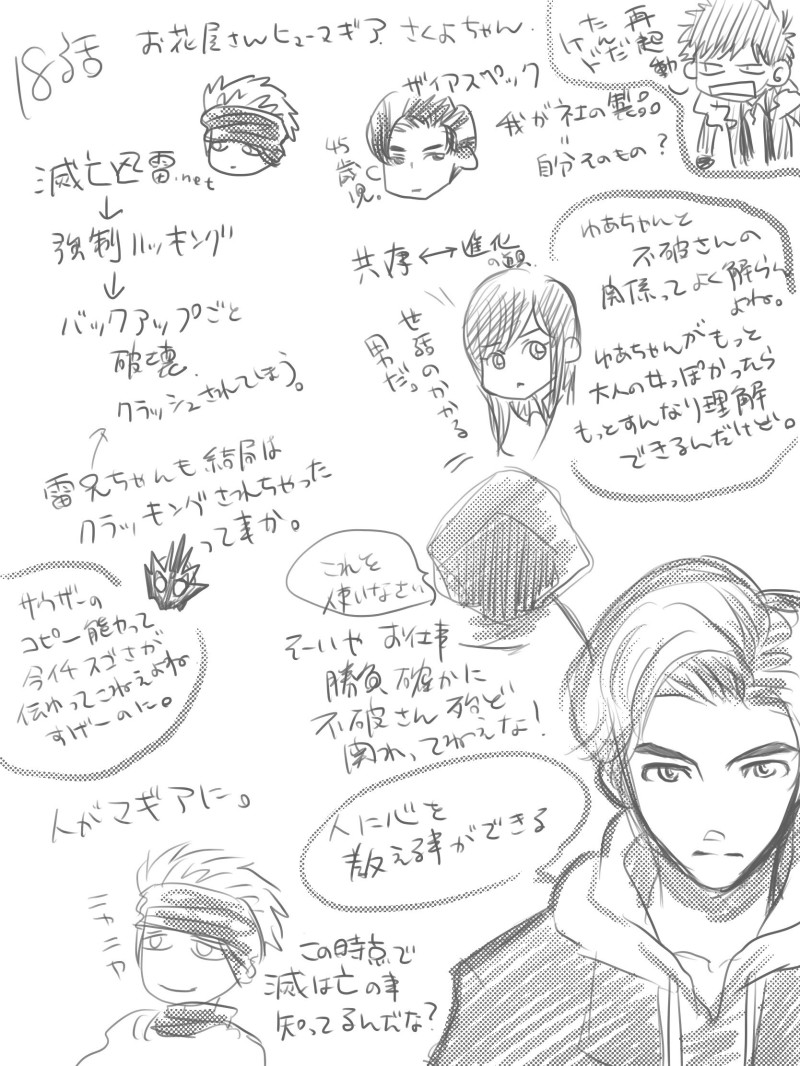 18話
お花屋さんヒューマギア さくよちゃん.
再起動
だだ
たんドけ
ザイアスペック
我が社の製品
=
自分そのもの?
45歳児。
滅亡迅雷.net
↓
強制ハッキング
↓
バックアップごと
破壊.
クラッシュされてしまう。
共存↔進化
の
世話のかかる
男だ。
ゆあちゃんと
不破さんの
関係ってよく解らん
よね。
ゆあちゃんがもっと
大人の女っぽかったら
もっとすんなり理解
できるんだけど。
雷兄ちゃんも結局は
クラッキングされちゃった
って事か。
サウザーの
コピー能力って
今イチスゴさが
伝わってこねえよね
すげーのに。
これを
使いなさい
そーいや お仕事
勝負 確かに
不破さん 殆ど
関わってねえな!
人がマギアに。
人に心を
教える事ができる
ニヤニヤ
この時点で
滅は亡の事
知ってるんだな?